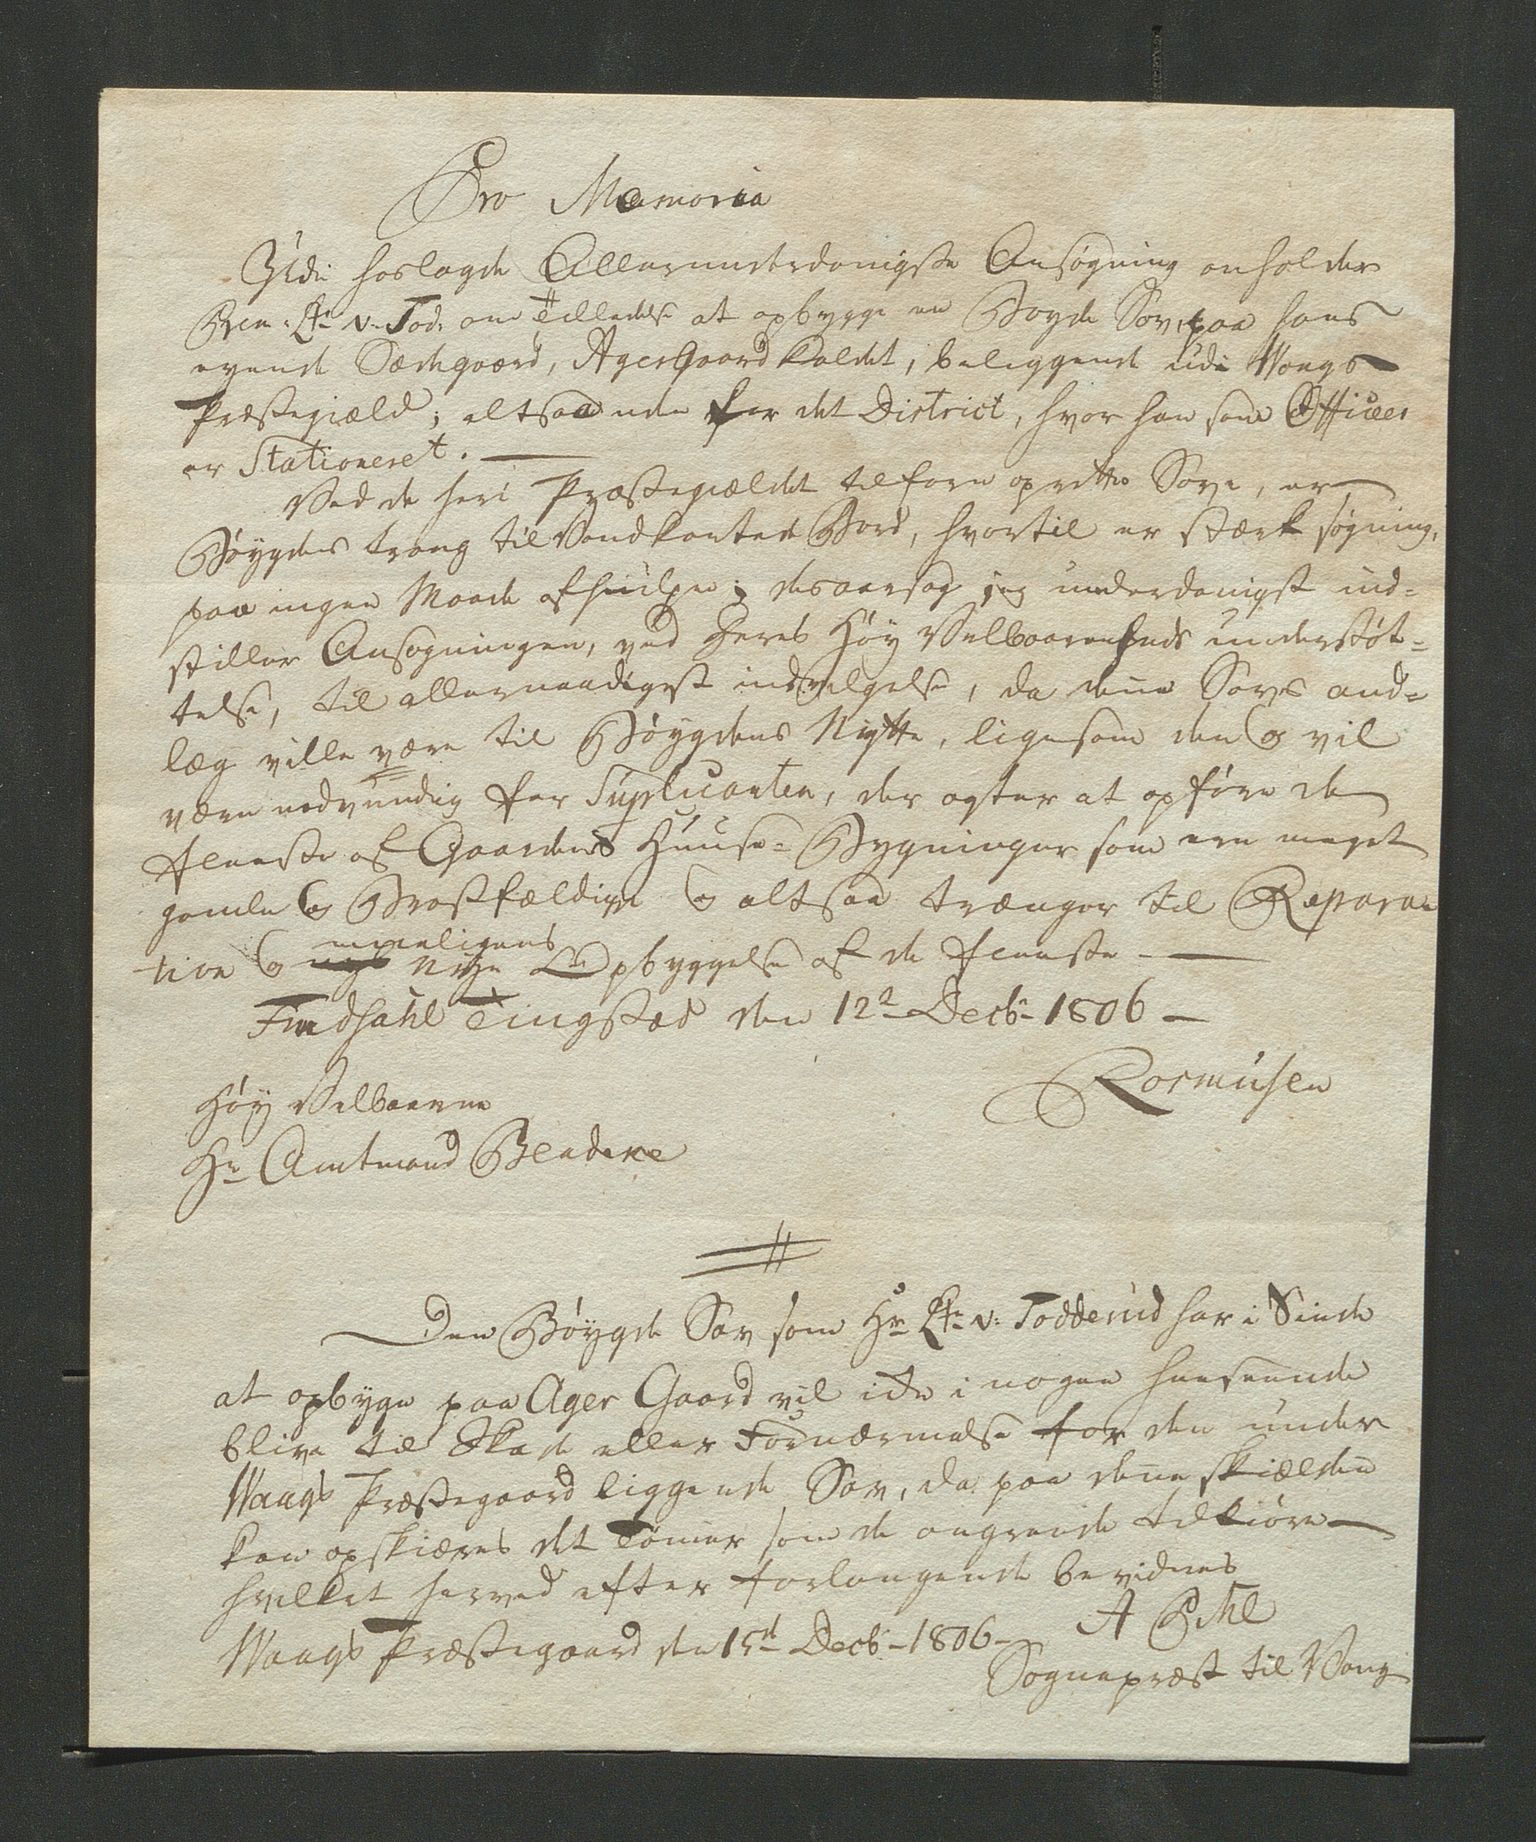 Pro Memoria
Udi hoslagde Allerunderdanigste Ansøgning anholder
Pren: Lt: v. Tod. om Tilladelse at opbygge en Bøyde Sav, paa hans
eyende Sædegaard, AgerGaard kaldet, beliggende udi Vangs
Præstegield; altsaa uden for det District, hvor han som Officer
er Stationeret. —
Ved de her i Præstegieldet tilforn oprettede Save, er
Bøygdens trang til Vandkantede Bord, hvortil er stærk søgning,
paa ingen Maade afhiulpen; desaarsag jeg underdanigst ind=
stiller Ansøgningen, ved Deres Høy Velbaarenheds understøt=
telse, til allernaadigst indvilgelse, da denne Savs and=
læg ville være til Bøygdens Nytte, ligesom den og vil
være nødvendig for Suplicanten, der agter at opføre de
fleeste af Gaardens Huuse=Bygninger som ere meget
gamle og Brøstfældige og altsaa trænger til Repara=
tion og nye Opbyggelse af de fleeste —
Tingstæd den 12te Decbr 1806 —
Rasmusen
Høy Velbaarne
Hr Amtmand Bendeke
Den Bøygde Sav som Hr Lt: v: Todderud har i Sinde
at opbyge paa Ager Gaard vil ikke i nogen henseende
blive til Skade eller Fornærmelse for den under
Vangs Præstegaard liggende Sav, da paa denne skielden
kan opskiæres det Tømer som de angrende tilkiøre —
hvilket herved efter forlangende bevidnes
Vangs Præstegaard den 15d Decbr 1806 — A Pihl
Sognepræst til Vang